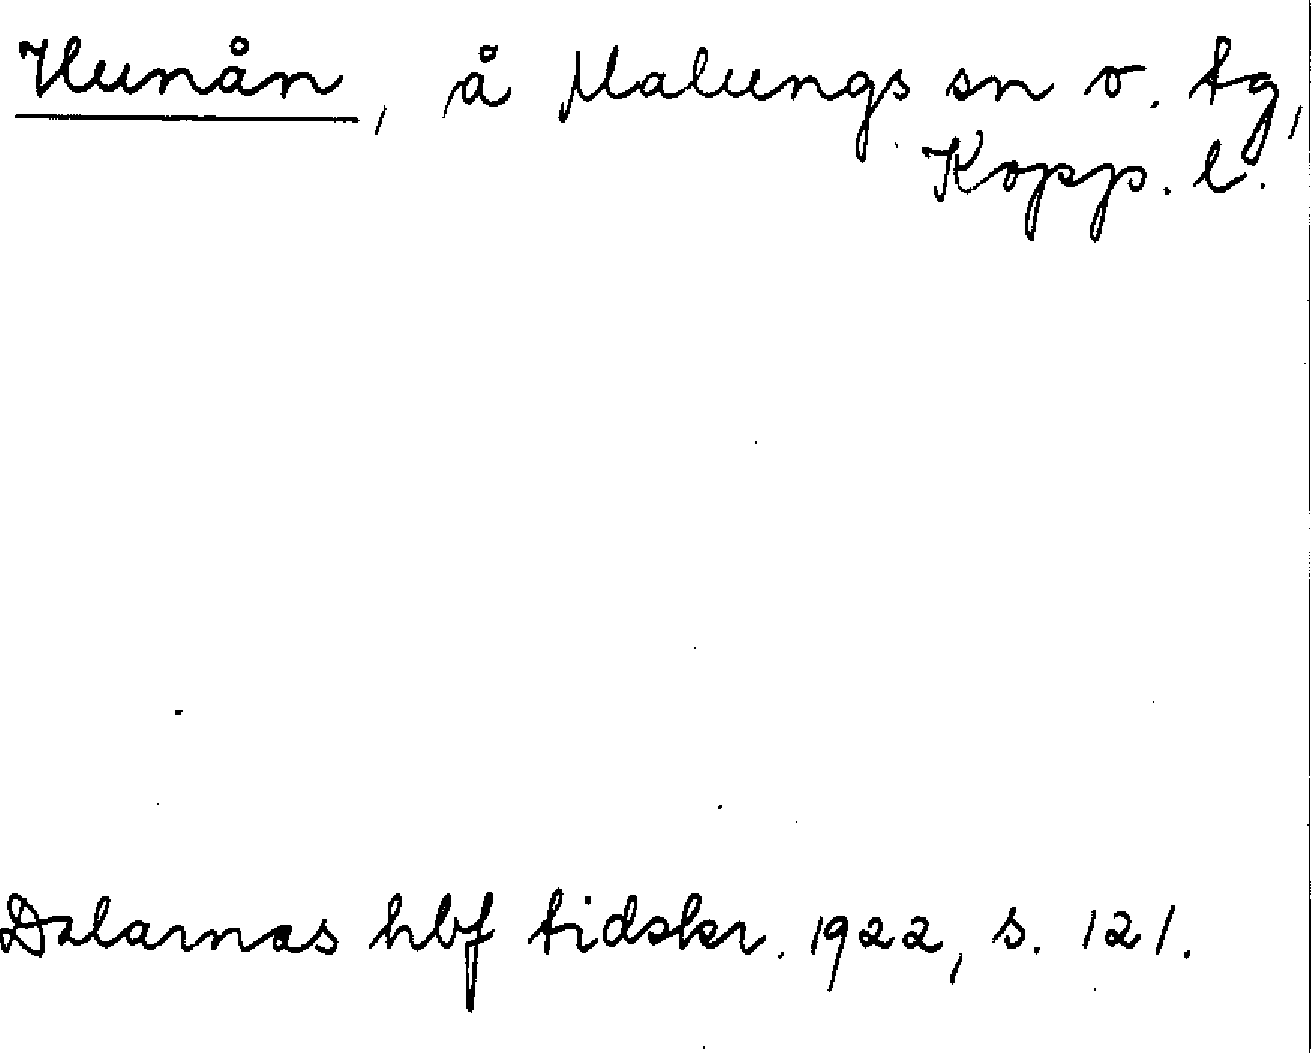 Hunån, å Malungs sn o. tg,
Kopp. l.
Dalarnas hbf tidskr. 1922, s. 121.